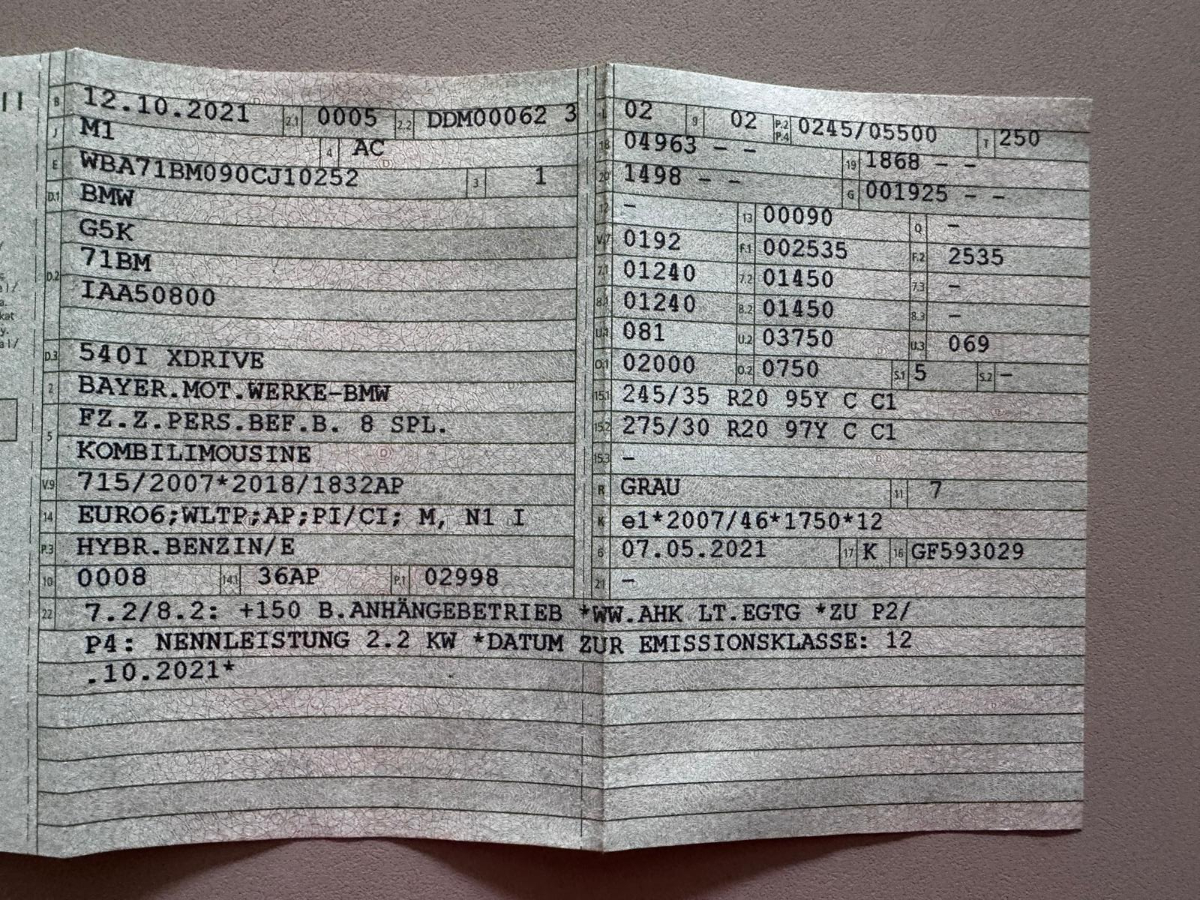 B 12.10.2021 2.1 0005 2.2 DDM00062 3
J M1 4 AC
E WBA71BM090CJ10252 3 1
D.1 BMW
G5K
D.2 71BM
IAA50800
D.3 540I XDRIVE
2 BAYER.MOT.WERKE-BMW
5 FZ.Z.PERS.BEF.B. 8 SPL.
KOMBILIMOUSINE
V.9 715/2007*2018/1832AP
14 EURO6;WLTP;AP;PI/CI; M, N1 I
P.3 HYBR.BENZIN/E
10 0008 14.1 36AP P.1 02998
L 02 9 02 P.2 P.4 0245/05500 T 250
18 04963 - - 19 1868 - -
20 1498 - - G 001925 - -
12 - 13 00090 Q -
V.7 0192 F.1 002535 F.2 2535
7.1 01240 7.2 01450 7.3 -
8.1 01240 8.2 01450 8.3 -
U.1 081 U.2 03750 U.3 069
O.1 02000 O.2 0750 S.1 5 S.2 -
15.1 245/35 R20 95Y C C1
15.2 275/30 R20 97Y C C1
15.3 -
R GRAU 11 7
K e1*2007/46*1750*12
6 07.05.2021 17 K 16 GF593029
21 -
22 7.2/8.2: +150 B.ANHÄNGEBETRIEB *WW.AHK LT.EGTG *ZU P2/
P4: NENNLEISTUNG 2.2 KW *DATUM ZUR EMISSIONSKLASSE: 12
.10.2021*